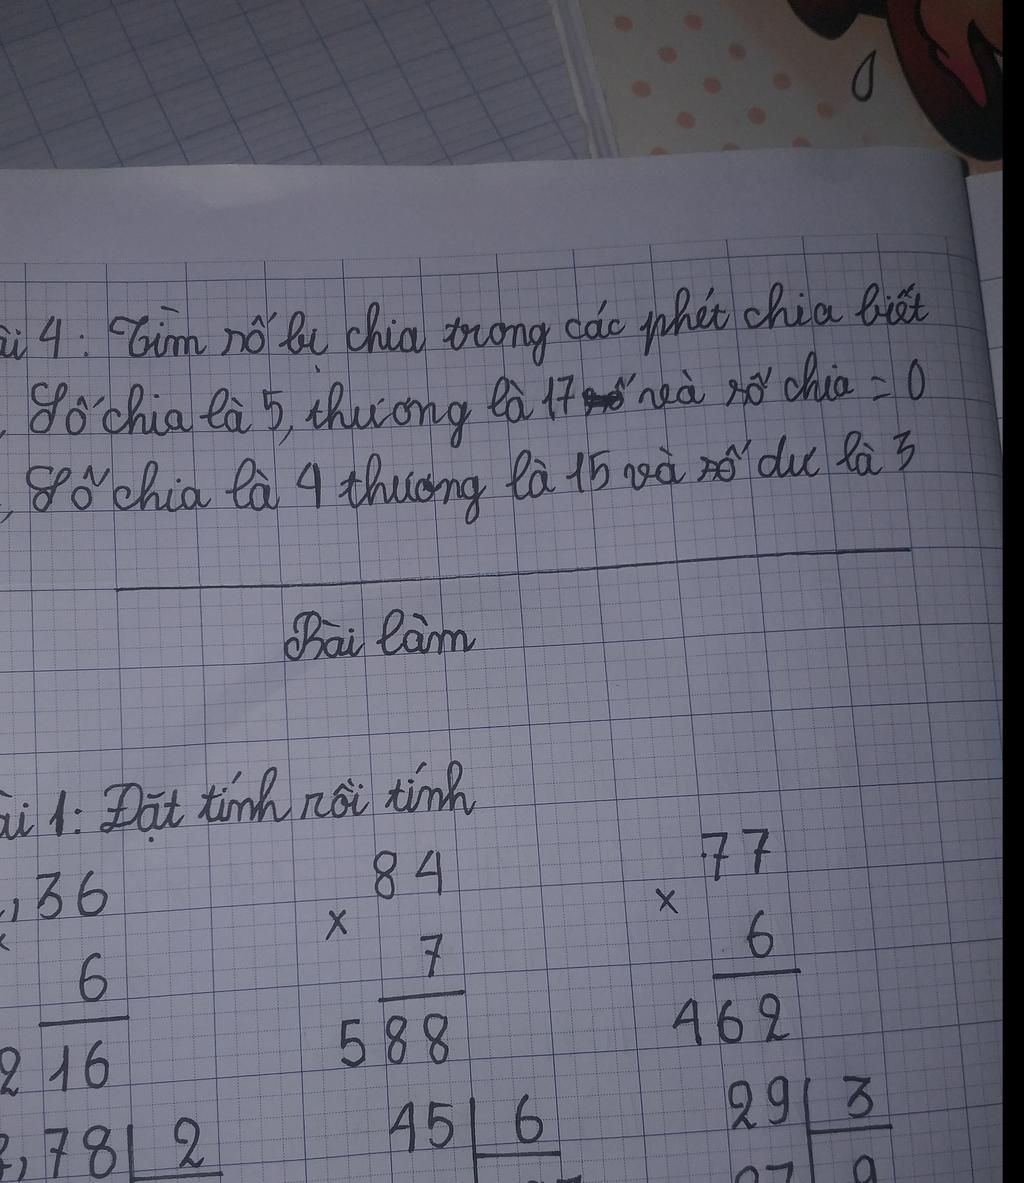 4: Tìm số bị chia trong các phét chia biết
Số chia là 5, thương là 17 và số chia = 0
Số chia là 4 thương là 15 và số dư là 3
Bài làm
1: Đặt tính rồi tính
36
84
77
x
x
6
7
6
216
588
462
78 2
45 6
29 3
27 9